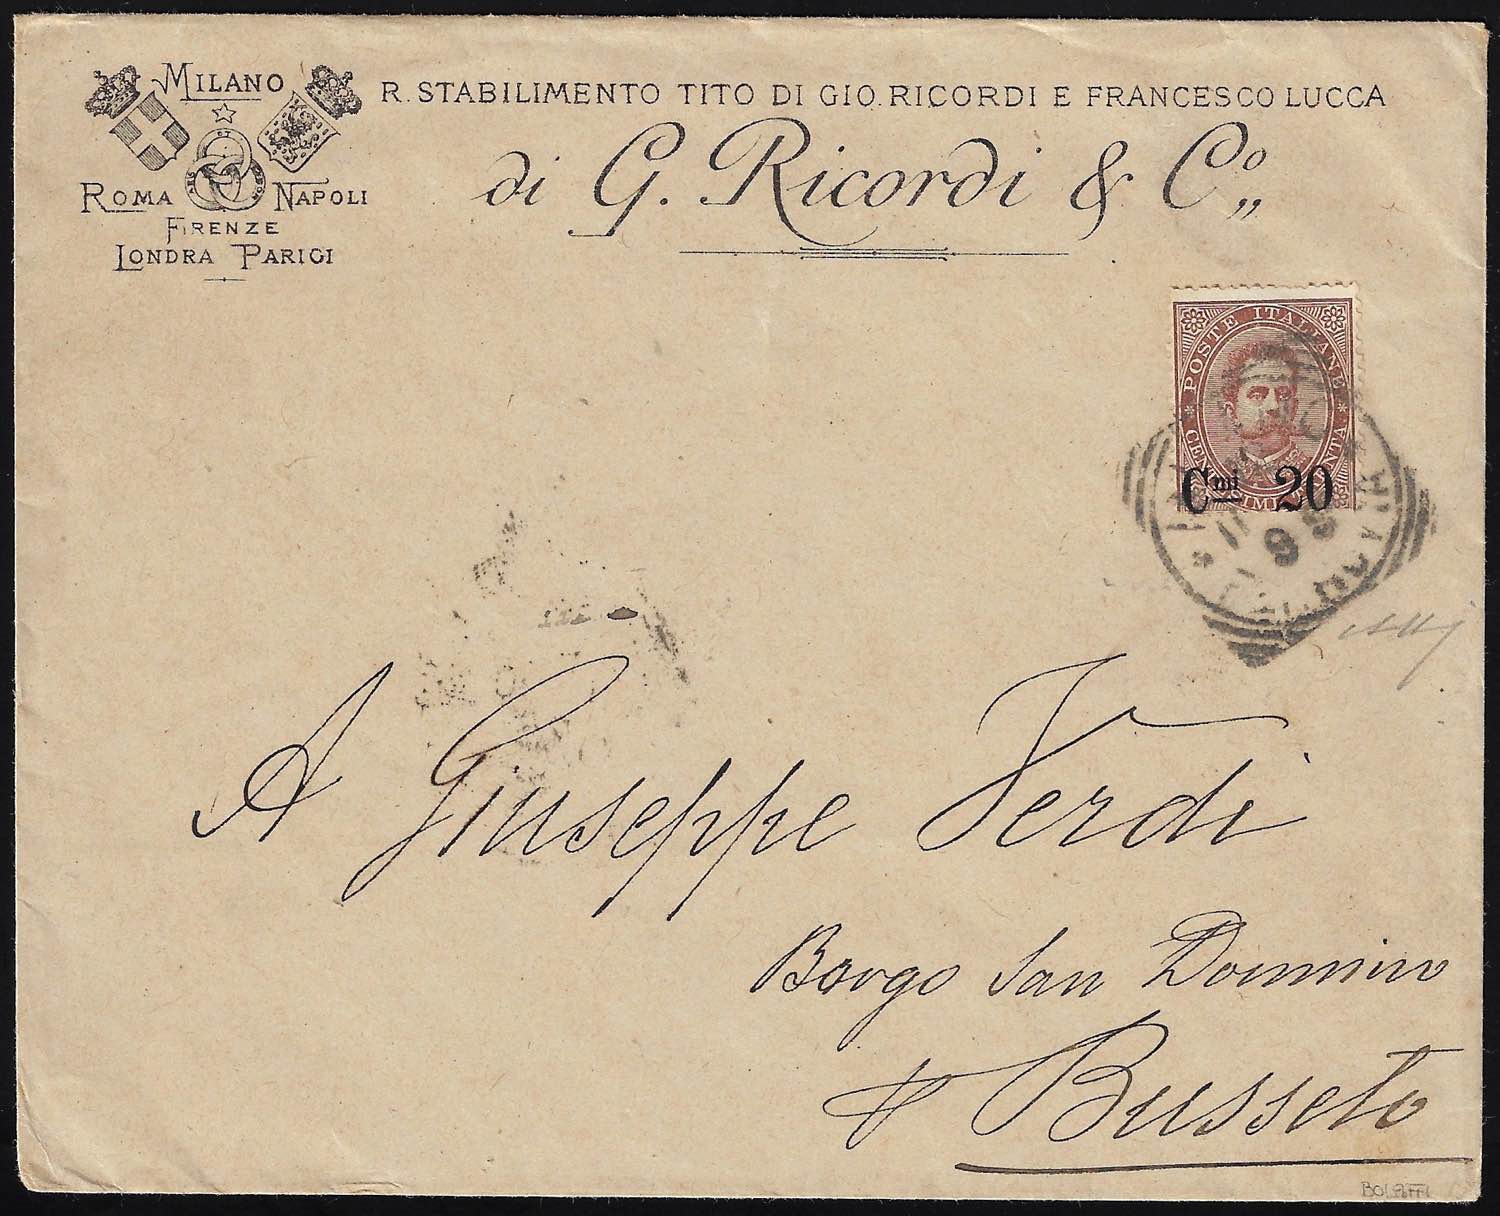 MILANO
ROMA NAPOLI
FIRENZE
LONDRA PARIGI
R. STABILIMENTO TITO DI GIO. RICORDI E FRANCESCO LUCCA
di G. Ricordi & Co„
POSTE ITALIANE
Cmi 20
95
A Giuseppe Verdi
Borgo San Donnino
p Busseto